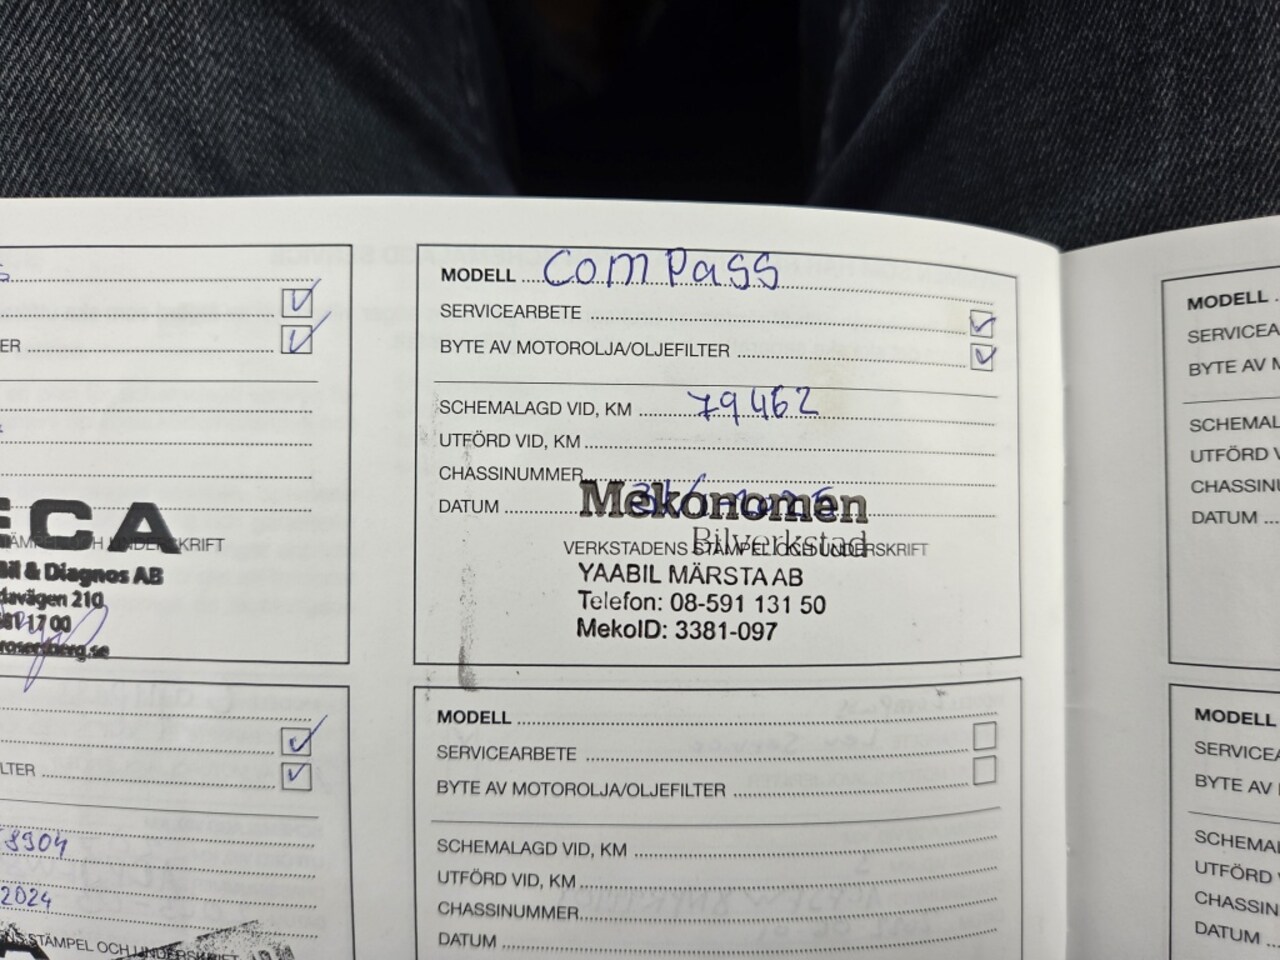 ER
ECA
STÄMPEL OCH UNDERSKRIFT
Bil & Diagnos AB
davägen 210
681 17 00
rosersberg.se
LTER
8904
2024
STÄMPEL OCH UNDERSKRIFT
MODELL ComPass
SERVICEARBETE
BYTE AV MOTOROLJA/OLJEFILTER
SCHEMALAGD VID, KM 79462
UTFÖRD VID, KM
CHASSINUMMER
DATUM
Mekonomen
Bilverkstad
VERKSTADENS STÄMPEL OCH UNDERSKRIFT
YAABIL MÄRSTA AB
Telefon: 08-591 131 50
MekoID: 3381-097
MODELL
SERVICEARBETE
BYTE AV MOTOROLJA/OLJEFILTER
SCHEMALAGD VID, KM
UTFÖRD VID, KM
CHASSINUMMER
DATUM
MODELL
SERVICEA
BYTE AV M
SCHEMAL
UTFÖRD V
CHASSINU
DATUM
MODELL
SERVICEA
BYTE AV
SCHEMA
UTFÖRD
CHASSIN
DATUM